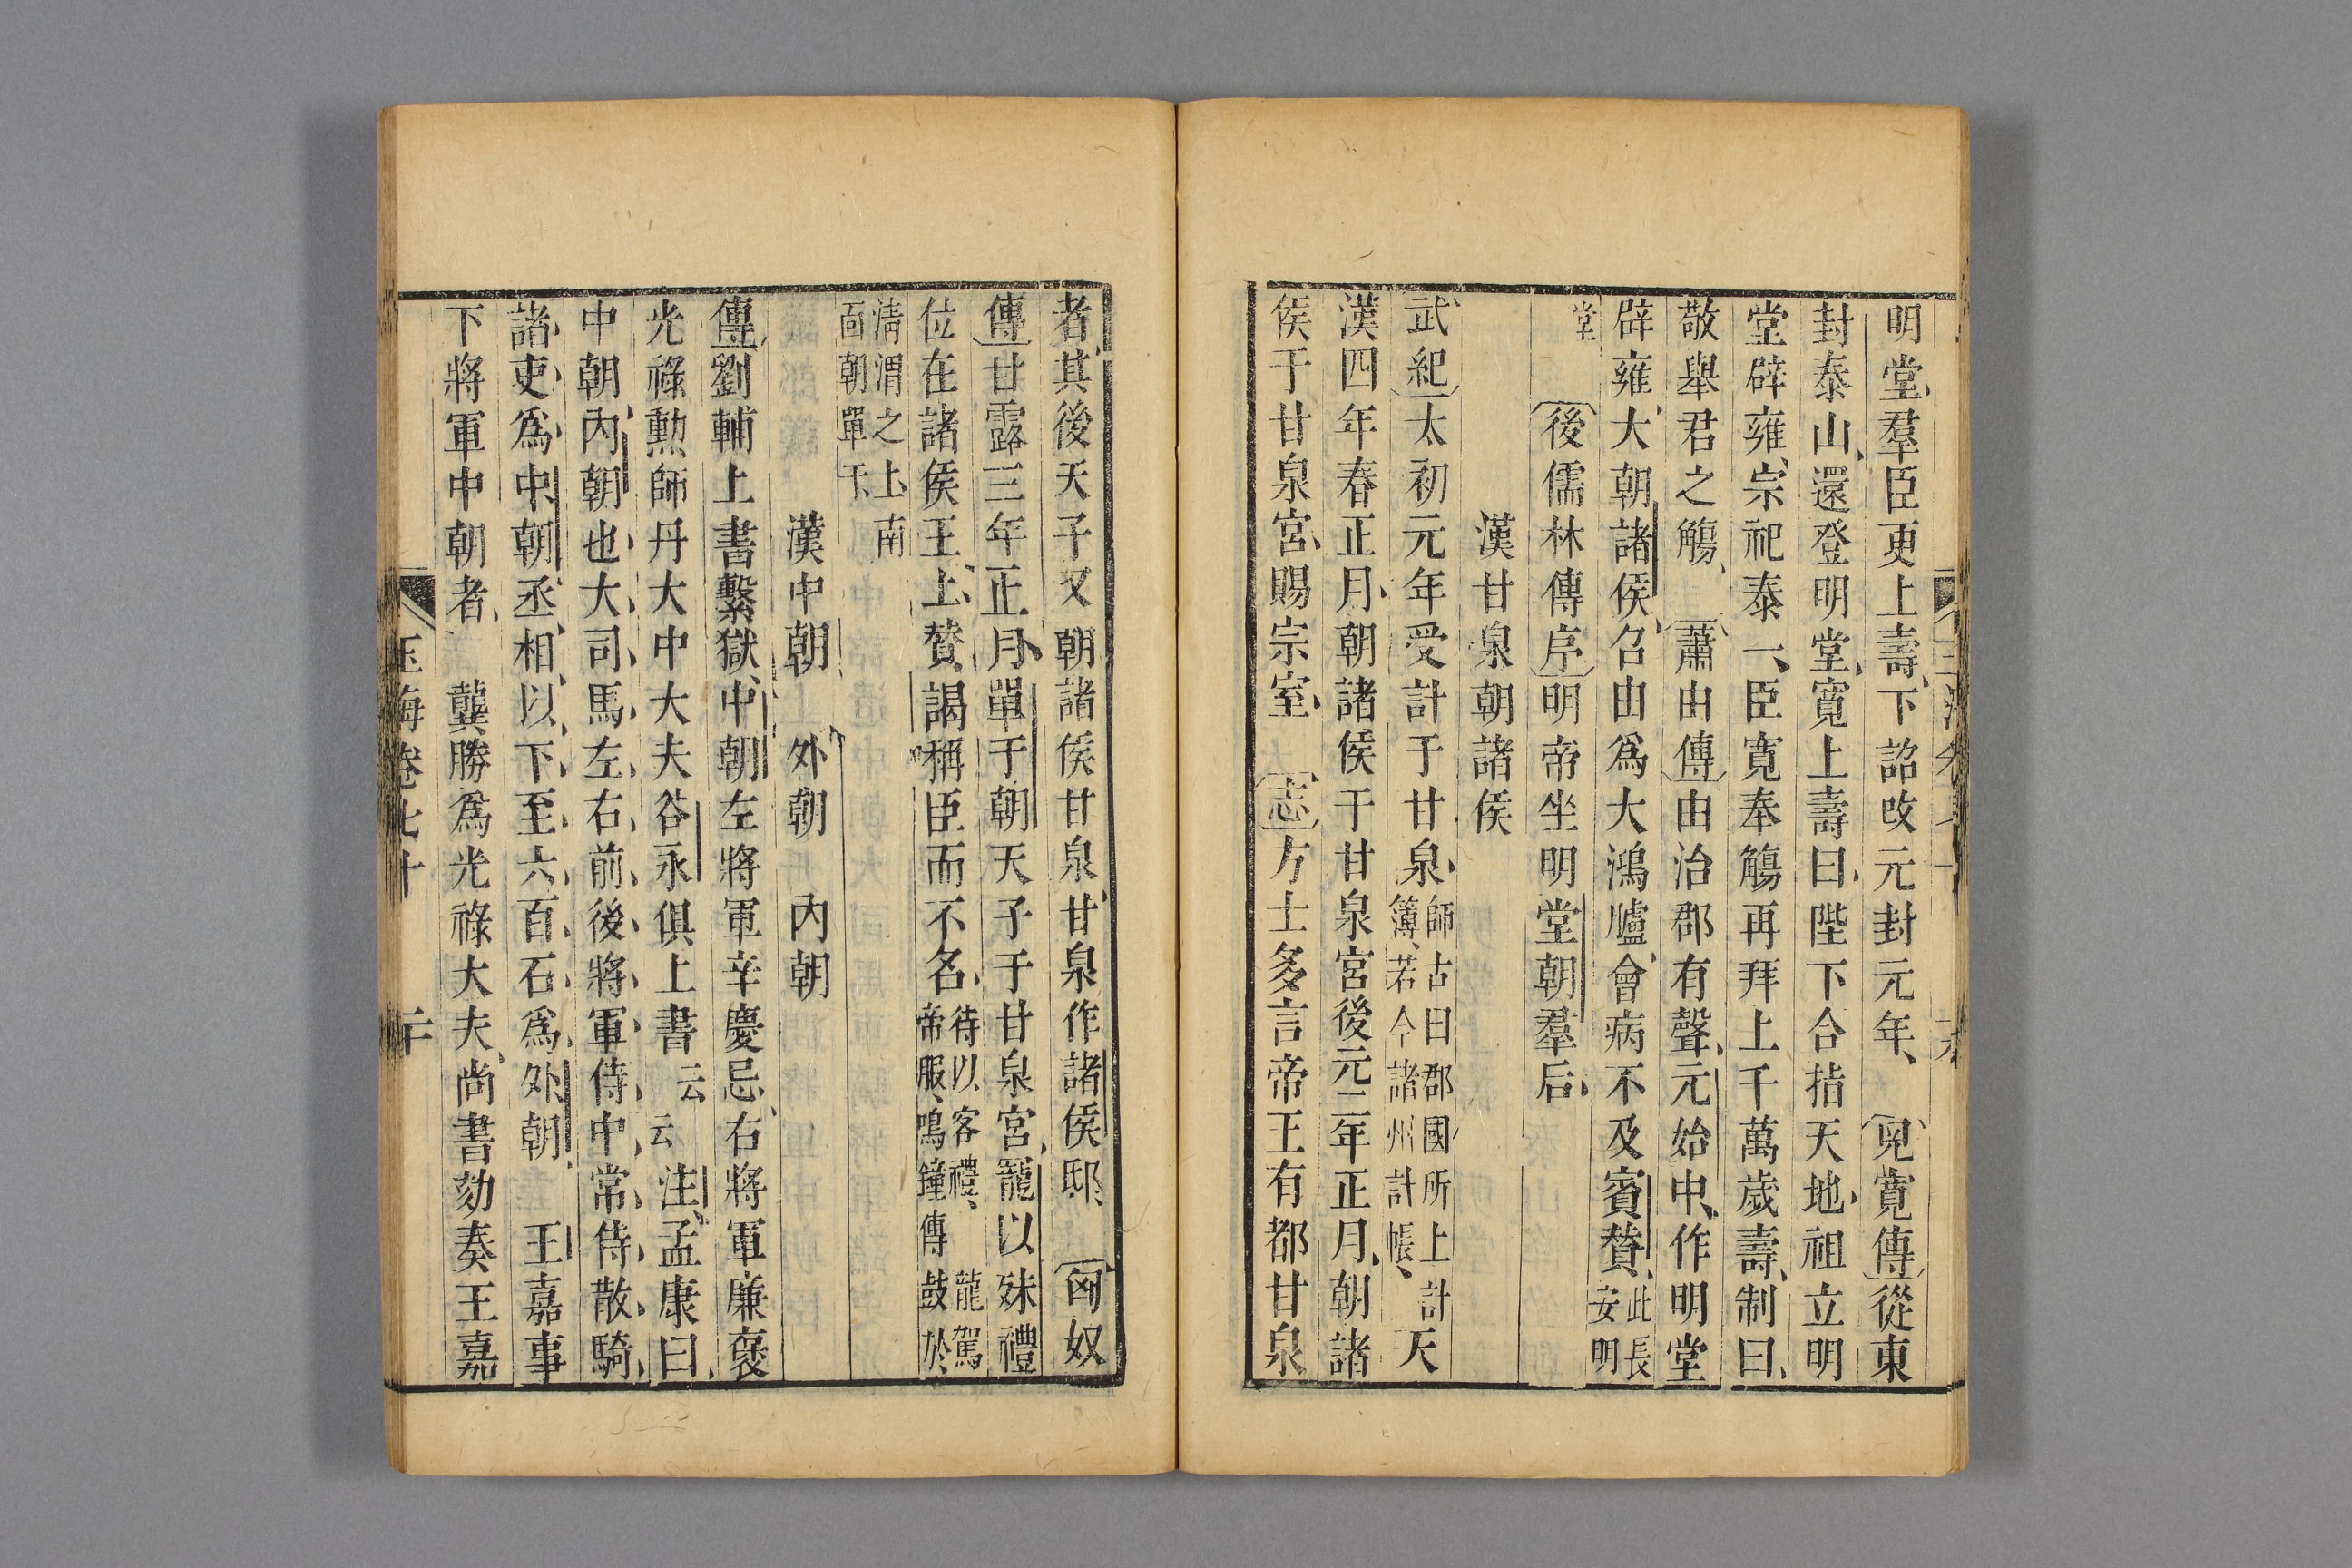 明堂羣臣更上壽下詔改元封元年 兒寬傳從東
封泰山還登明堂寛上壽曰陛下合指天地祖立明
堂辟雍宗祀泰一臣寬奉觴再拜上千萬歲壽制曰
敬舉君之觴 蕭由傳由治郡有聲元始中作明堂
辟雍大朝諸侯召由爲大鴻臚會病不及賓贊此長安明
堂 後儒林傳序明帝坐明堂朝羣后
漢甘泉朝諸侯
武紀太初元年受計于甘泉師古曰郡國所上計簿若今諸州計帳天
漢四年春正月朝諸侯于甘泉宮後元二年正月朝諸
侯于甘泉宮賜宗室 志方士多言帝王有都甘泉
者其後天子又朝諸侯甘泉甘泉作諸侯邸 匈奴
傳甘露三年正月單于朝天子于甘泉宮寵以殊禮
位在諸侯王上贊謁稱臣而不名待以客禮 龍駕帝服鳴鐘傳鼓於
清渭之上南面朝單于
漢中朝 外朝 內朝
傳劉輔上書繫獄中朝左將軍辛慶忌右將軍廉襃
光祿勲師丹大中大夫谷永俱上書云云 注孟康曰
中朝內朝也大司馬左右前後將軍侍中常侍散騎
諸吏爲中朝丞相以下至六百石爲外朝 王嘉事
下將軍中朝者 龔勝爲光祿大夫尚書劾奏王嘉
玉海卷七十 二十